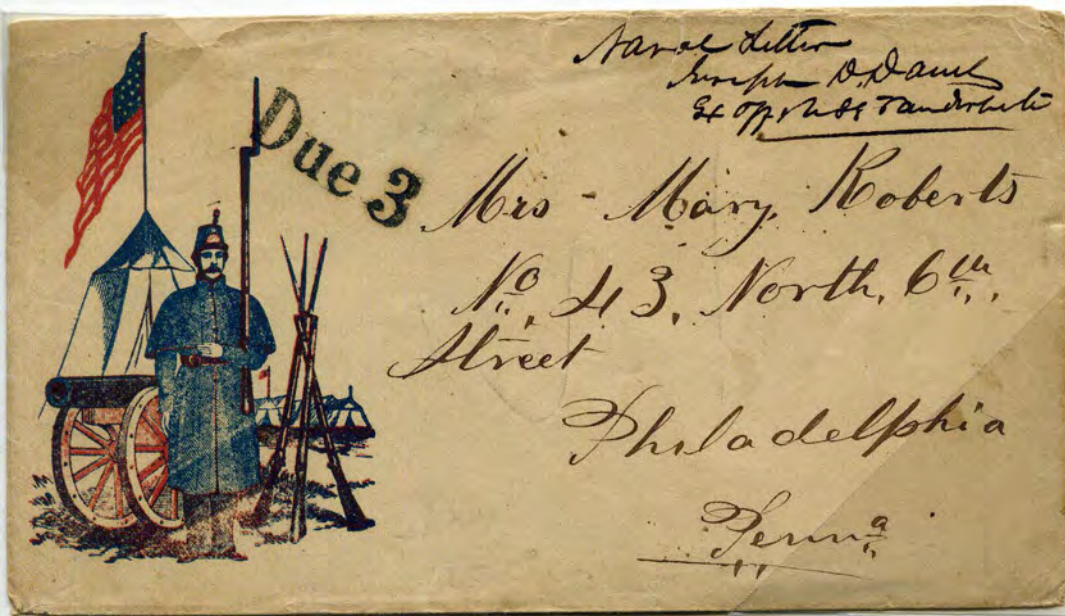 Naval Letter
Joseph D. Daniels
Ex Off U.S.S. Vanderbilt
Due 3
Mrs Mary Roberts
No. 43, North, 6th,
Street
Philadelphia
Penna